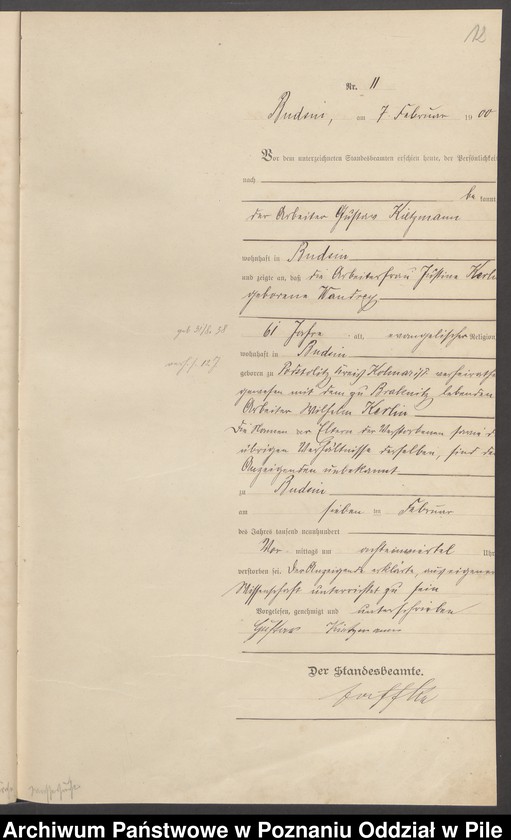 12
Nr. 11
Budsin, am 7 Februar 1900
Vor dem unterzeichneten Standesbeamten erschien heute, der Persönlichkeit
nach
be kannt
der Arbeiter Gustav Kietzmann
wohnhaft in Budsin
und zeigte an, daß die Arbeiterfrau Justine
geborene
61 Jahre alt, evangelischer Religion
wohnhaft in Budsin
geboren zu Kreis Kolmar i/P verheirathet
gewesen mit dem zu lebenden
Arbeiter Wilhelm
Die Namen der Eltern der Verstorbenen sowie d
übrigen Verhältnisse derselben, sind dem
Anzeigenden unbekannt
zu Budsin
am sieben ten Februar
des Jahres tausend neunhundert
Vor mittags um Uhr
verstorben sei. Der Anzeigende erklärte, aus eigener
Wissenschaft unterrichtet zu sein
Vorgelesen, genehmigt und unterschrieben
Gustav Kietzmann
Der Standesbeamte.
Archiwum Państwowe w Poznaniu Oddział w Pile